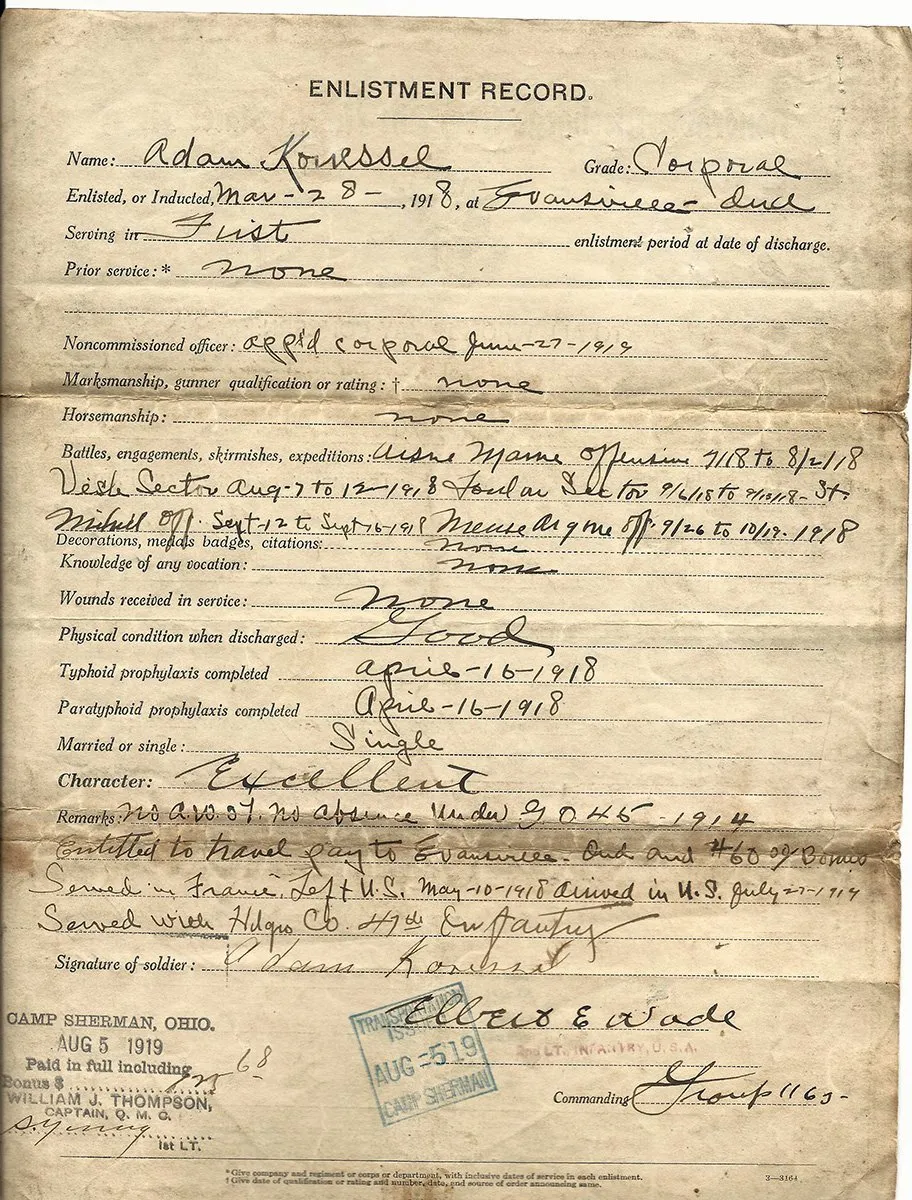 ENLISTMENT RECORD.
Name: Adam Konessel Grade: Corporal
Enlisted, or Inducted, Mar-28-, 1918, at Evansville- Ind
Serving in First enlistment period at date of discharge.
Prior service:* none
Noncommissioned officer: app'd corporal June-27-1919
Marksmanship, gunner qualification or rating:† none
Horsemanship: none
Battles, engagements, skirmishes, expeditions: Aisne Marne offensive 7/18 to 8/2/18
Vesle Sector Aug-7 to 12-1918 Sector 9/6/18 to St.
Mihiel Off. Sept-12 to Sept-16-1918 Meuse Argone off. 9/26 to 10/19. 1918
Decorations, medals badges, citations: none
Knowledge of any vocation: none
Wounds received in service: none
Physical condition when discharged: Good
Typhoid prophylaxis completed April-16-1918
Paratyphoid prophylaxis completed April-16-1918
Married or single: Single
Character: Excellent
Remarks: No A.W.O.L. No absence Under G O 45 - 1914
Entitled to travel pay to Evansville- Ind and $60 Bonus
Served in France, Left U.S. May-10-1918 arrived in U.S. July-27-1919
Served with Hdqrs Co. 47th Infantry
Signature of soldier: Adam
Elbert E Wade
2nd LT. INFANTRY, U.S.A.
Commanding Group 1163-
TRANSPORTATION
AUG -5 19
CAMP SHERMAN
CAMP SHERMAN, OHIO.
AUG 5 1919
Paid in full including
Bonus $ 68
WILLIAM J. THOMPSON,
CAPTAIN, Q. M. C.
1st LT.
*Give company and regiment or corps or department, with inclusive dates of service in each enlistment.
†Give date of qualification or rating and number, date, and source of order announcing same.
3—3164